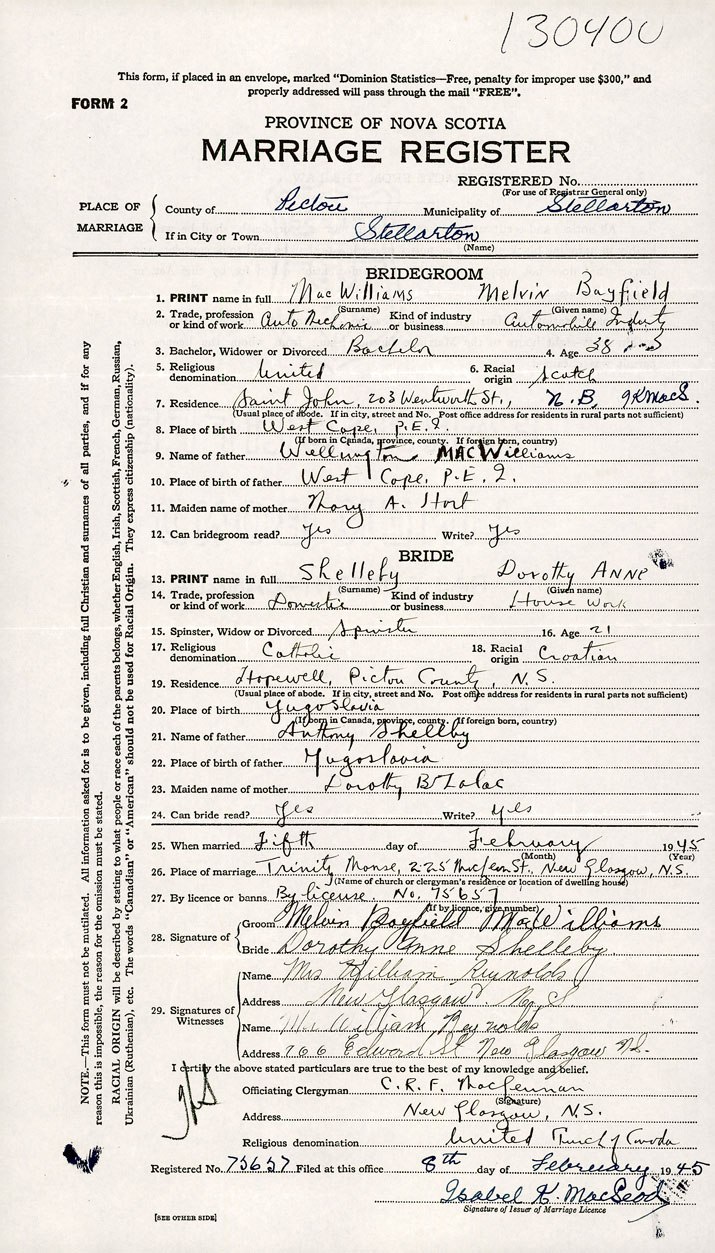 130400
This form, if placed in an envelope, marked "Dominion Statistics—Free, penalty for improper use $300," and
properly addressed will pass through the mail "FREE".
FORM 2
PROVINCE OF NOVA SCOTIA
MARRIAGE REGISTER
REGISTERED No.
(For use of Registrar General only)
PLACE OF MARRIAGE
County of Pictou Municipality of Stellarton
If in City or Town Stellarton
(Name)
BRIDEGROOM
1. PRINT name in full MacWilliams Melvin Bayfield
(Surname) (Given name)
2. Trade, profession or kind of work Auto Mechanic Kind of industry or business Automobile Industy
3. Bachelor, Widower or Divorced Bachelor 4. Age 38
5. Religious denomination United 6. Racial origin Scotch
7. Residence Saint John, 203 Wentworth St., N.B. IKMacL.
(Usual place of abode. If in city, street and No. Post office address for residents in rural parts not sufficient)
8. Place of birth West Cape, P.E.I.
(If born in Canada, province, county. If foreign born, country)
9. Name of father Wellington MACWilliams
10. Place of birth of father West Cape, P.E.I.
11. Maiden name of mother Mary A. Hort
12. Can bridegroom read? Yes Write? Yes
BRIDE
13. PRINT name in full Shelleby Dorothy ANNE
(Surname) (Given name)
14. Trade, profession or kind of work Domestic Kind of industry or business House Work
15. Spinster, Widow or Divorced Spinster 16. Age 21
17. Religious denomination Catholic 18. Racial origin Croatian
19. Residence Hopewell, Pictou County, N.S.
(Usual place of abode. If in city, street and No. Post office address for residents in rural parts not sufficient)
20. Place of birth Yugoslavia
(If born in Canada, province, county. If foreign born, country)
21. Name of father Anthony Shellby
22. Place of birth of father Yugoslavia
23. Maiden name of mother Dorothy
24. Can bride read? Yes Write? Yes
25. When married Fifth day of February 1945
(Month) (Year)
26. Place of marriage Trinity Manse, 225 MacLean St., New Glasgow, N.S.
(Name of church or clergyman's residence or location of dwelling house)
27. By licence or banns By license. No. 75657
(If by licence, give number)
28. Signature of
Groom Melvin Bayfield MacWilliams
Bride Dorothy Anne Shelleby
29. Signatures of Witnesses
Name Mrs William Reynolds
Address New Glasgow N.S
Name Mr William Reynolds
Address 266 Edward St New Glasgow N.S.
I certify the above stated particulars are true to the best of my knowledge and belief.
Officiating Clergyman C.R.F. MacLennan
(Signature)
Address New Glasgow, N.S.
Religious denomination United Church of Canada
Registered No. 75657 Filed at this office 8th day of February 1945
Isabel K. MacLeod
Signature of Issuer of Marriage Licence
[SEE OTHER SIDE]
NOTE.—This form must not be mutilated. All information asked for is to be given, including full Christian and surnames of all parties, and if for any
reason this is impossible, the reason for the omission must be stated.
RACIAL ORIGIN will be described by stating to what people or race each of the parents belongs, whether English, Irish, Scottish, French, German, Russian,
Ukrainian (Ruthenian), etc. The words "Canadian" or "American" should not be used for Racial Origin. They express citizenship (nationality).